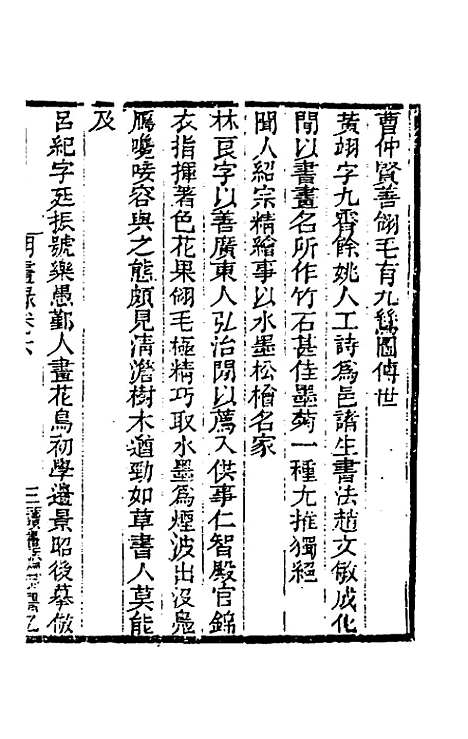 曹仲賢善翎毛有九鷥圖傳世
黃翊字九霄餘姚人工詩爲邑諸生書法趙文敏成化
間以書畫名所作竹石甚佳墨菊一種尤推獨絕
聞人紹宗精繪事以水墨松檜名家
林良字以善廣東人弘治間以薦入供事仁智殿官錦
衣指揮著色花果翎毛極精巧取水墨爲煙波出沒鳧
鴈嚵唼容與之態頗見淸澹樹木遒勁如草書人莫能
及
呂紀字廷振號樂愚鄞人畫花鳥初學邊景昭後摹倣
明畫錄卷六
三 讀畫齋叢書